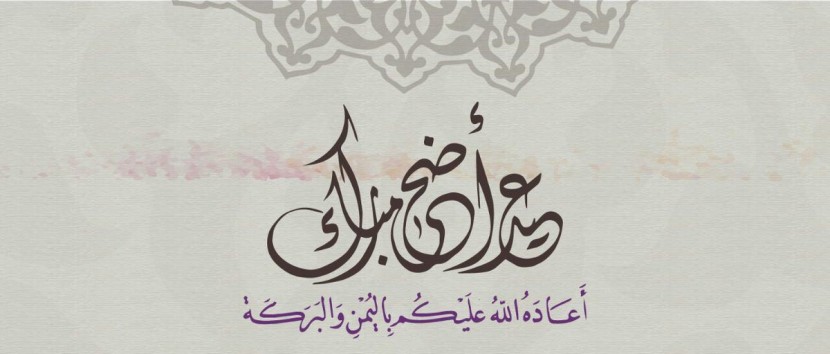 عيد أضحى مبارك
أَعَادَهُ اللّٰهُ عَلَيْكُم بِاليُمْنِ وَالبَرَكَة